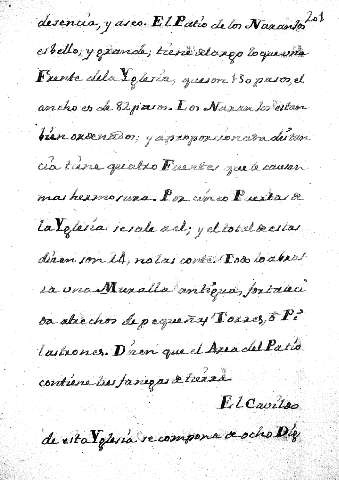 201
desencia, y aseo. El Patio de los Naranjos
es bello, y grande; tiene de largo lo que una
Frente de la Yglesia, que son 150 pasos, el
ancho es de 82 pasos. Los Naranjos estan
bien ordenados: y a proporsionada distan
cia tiene quatro Fuentes que le causan
mas hermosura. Por cinco Puertas de
la Yglesia se sale a el; y el total de estas
disen son 14, no las conté. Todo lo abras
sa una Muralla antigua, fortaleci
da a trechos de pequeñas Torres, ò Pi
lastrones. Disen que el Area del Patio
contiene tres fanegas de tierra.
El Cavildo
de esta Yglesia se compone de ocho Dig